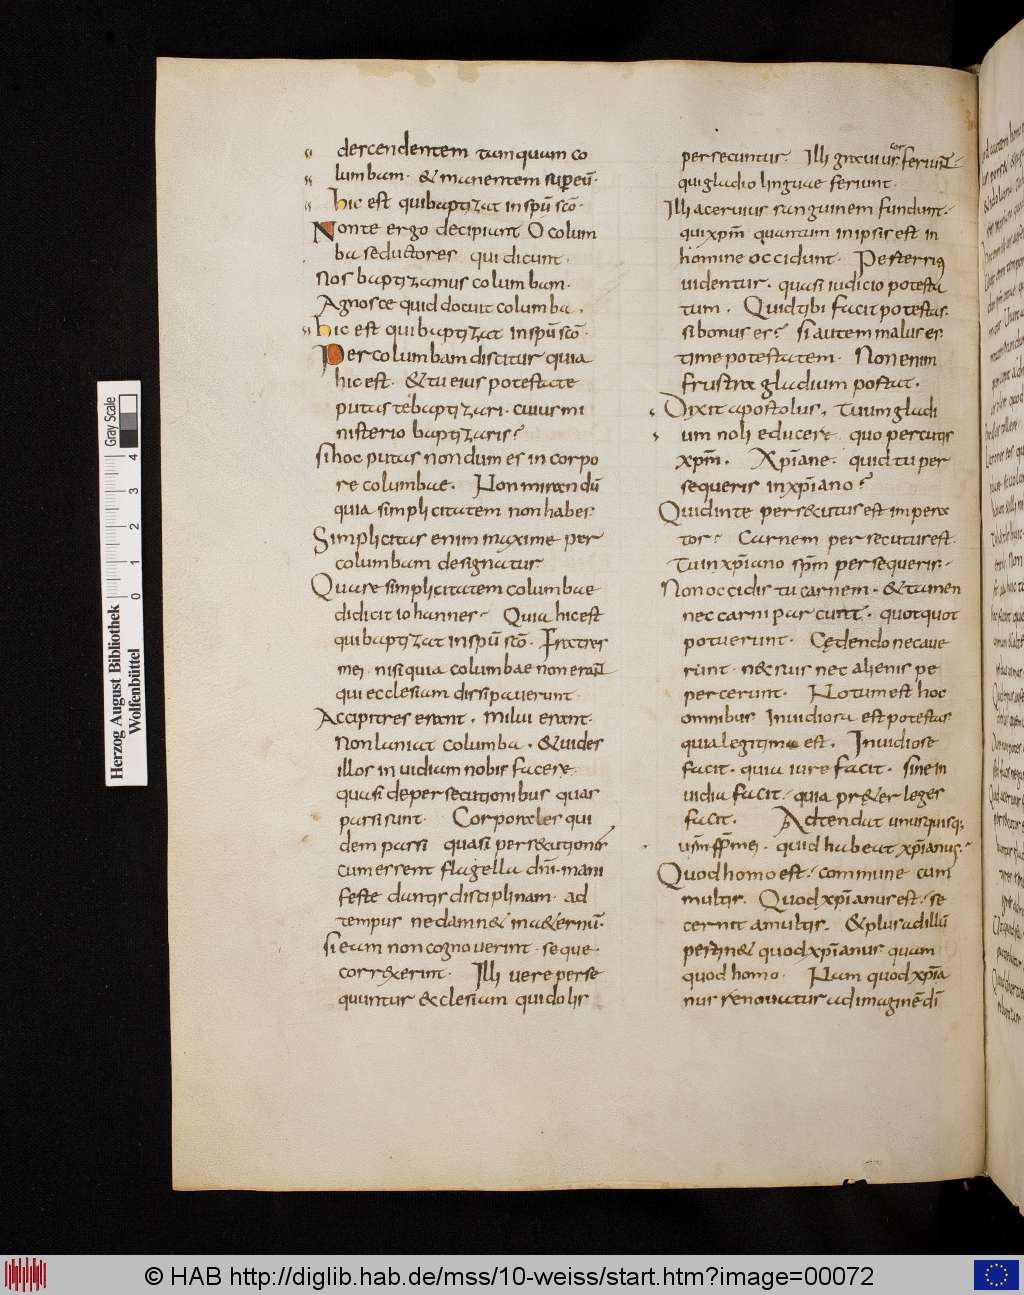 descendentem tamquam co
lumbam· & manentem sup eū·
hic est quibaptizat inspū scō·
Nonte ergo decipiant O colum
ba seductores quidicunt·
Nos baptizamus columbam·
Agnosce quid docuit columba·
hic est quibaptizat inspū scō·
Percolumbam discitur quia
hicest· & tu eius potestate
putas tebaptizari· cuiusmi
nisterio baptizaris?
sihoc putas nondum es in corpo
re columbae· Non mirandū
quia simplicitatem nonhabes·
Simplicitas enim maxime per
columbam designatur
Quare simplicitatem columbae
didicit iohannes· Quia hicest
quibaptizat inspū scō· Fratres
mei nisiquia columbae nonerant
qui ecclesiam dissipaverunt
Accipitres erant· milui erant·
Nonlaniat columba· & uides
illos in uidiam nobis facere
quasi depersecutionibus quas
passi sunt· Corporales qui
dem passi quasi persecutiones
cumessent flagella dn̄i mani
feste dantis disciplinam· ad
tempus nedamn& in&ernū·
si eam non cognoverint· seque·
correxerint· Illi vere perse
quuntur &clesiam quidolis
persecuntur· Illi gravius cor feriunt
quigladio linguae feriunt·
Illi acervius sanguinem fundunt·
qui xpm̄ quantum inipsis est in
homine occidunt· Pesterriꝰ
uidentur· quasi iudicio potesta
tum· Quid tibi facit potestas·
si bonus es? si autem malus es·
time potestatem· Non enim
frustra gladium postat·
Dixit apostolus· Tuum gladi
um noli educere quo percutis
xpm̄· Xpiane· quid tu per
sequeris inxp̄iano?
Quid inte pers&utus est impera
tor? Carnem persecutus est·
Tu inxp̄iano spm̄ persequeris·
Non occidis tu carnem· & tamen
nec carni parcunt· quotquot
potuerunt· Cędendo necave
runt· n&suis nec alienis pe
percerunt· Notum est hoc
omnibus Inuidiosa est potestas
quia legitima est· Inuidiose
facit· quia iure facit· sine in
uidia facit· quia pr&er leges
facit· Adtendat unusquisq;
urm̄ fr̄s mei· quid habeat xp̄ianus·
Quod homo est· commune cum
multis· Quodxp̄ianus est· se
cernit a multis· & plus adillū
pertin& quodxp̄ianus quam
quod homo· Nam quodxp̄ia
nus renovatur adimaginē dī
Herzog August Bibliothek
Wolfenbüttel
0 1 2 3 4
Gray Scale
© HAB http://diglib.hab.de/mss/10-weiss/start.htm?image=00072